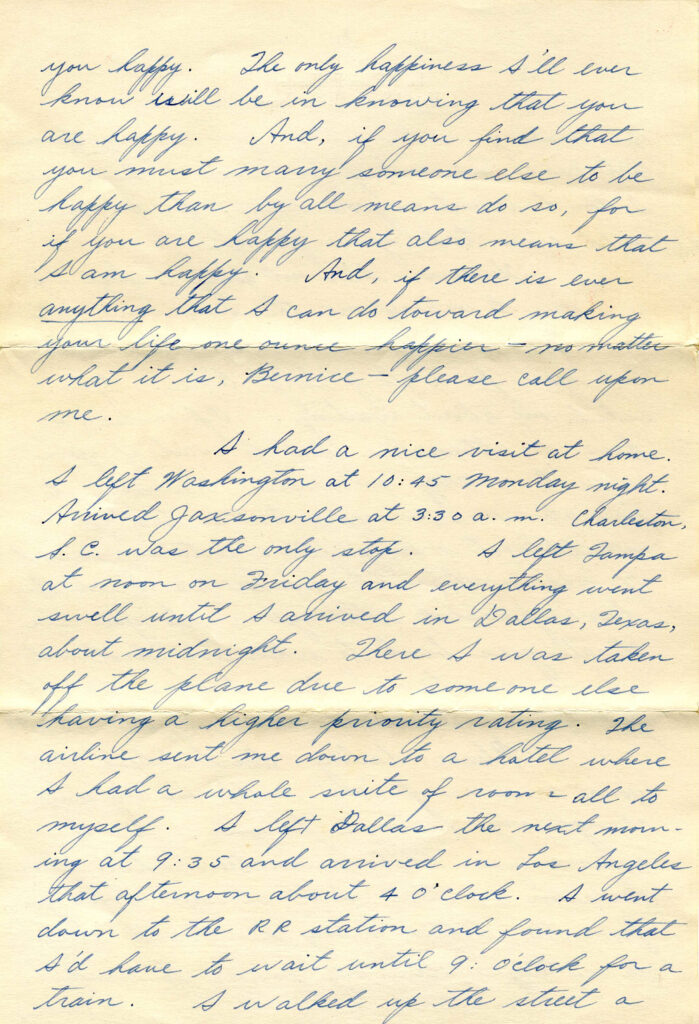 you happy. The only happiness I'll ever
know will be in knowing that you
are happy. And, if you find that
you must marry someone else to be
happy than by all means do so, for
if you are happy that also means that
I am happy. And, if there is ever
anything that I can do toward making
your life one ounce happier – no matter
what it is, Bernice – please call upon
me.
I had a nice visit at home.
I left Washington at 10:45 Monday night.
Arrived Jaxsonville at 3:30 a.m. Charleston,
S.C. was the only stop. I left Tampa
at noon on Friday and everything went
swell until I arrived in Dallas, Texas,
about midnight. There I was taken
off the plane due to someone else
having a higher priority rating. The
airline sent me down to a hotel where
I had a whole suite of rooms all to
myself. I left Dallas the next morn-
ing at 9:35 and arrived in Los Angeles
that afternoon about 4 O'clock. I went
down to the RR station and found that
I'd have to wait until 9: O'clock for a
train. I walked up the street a